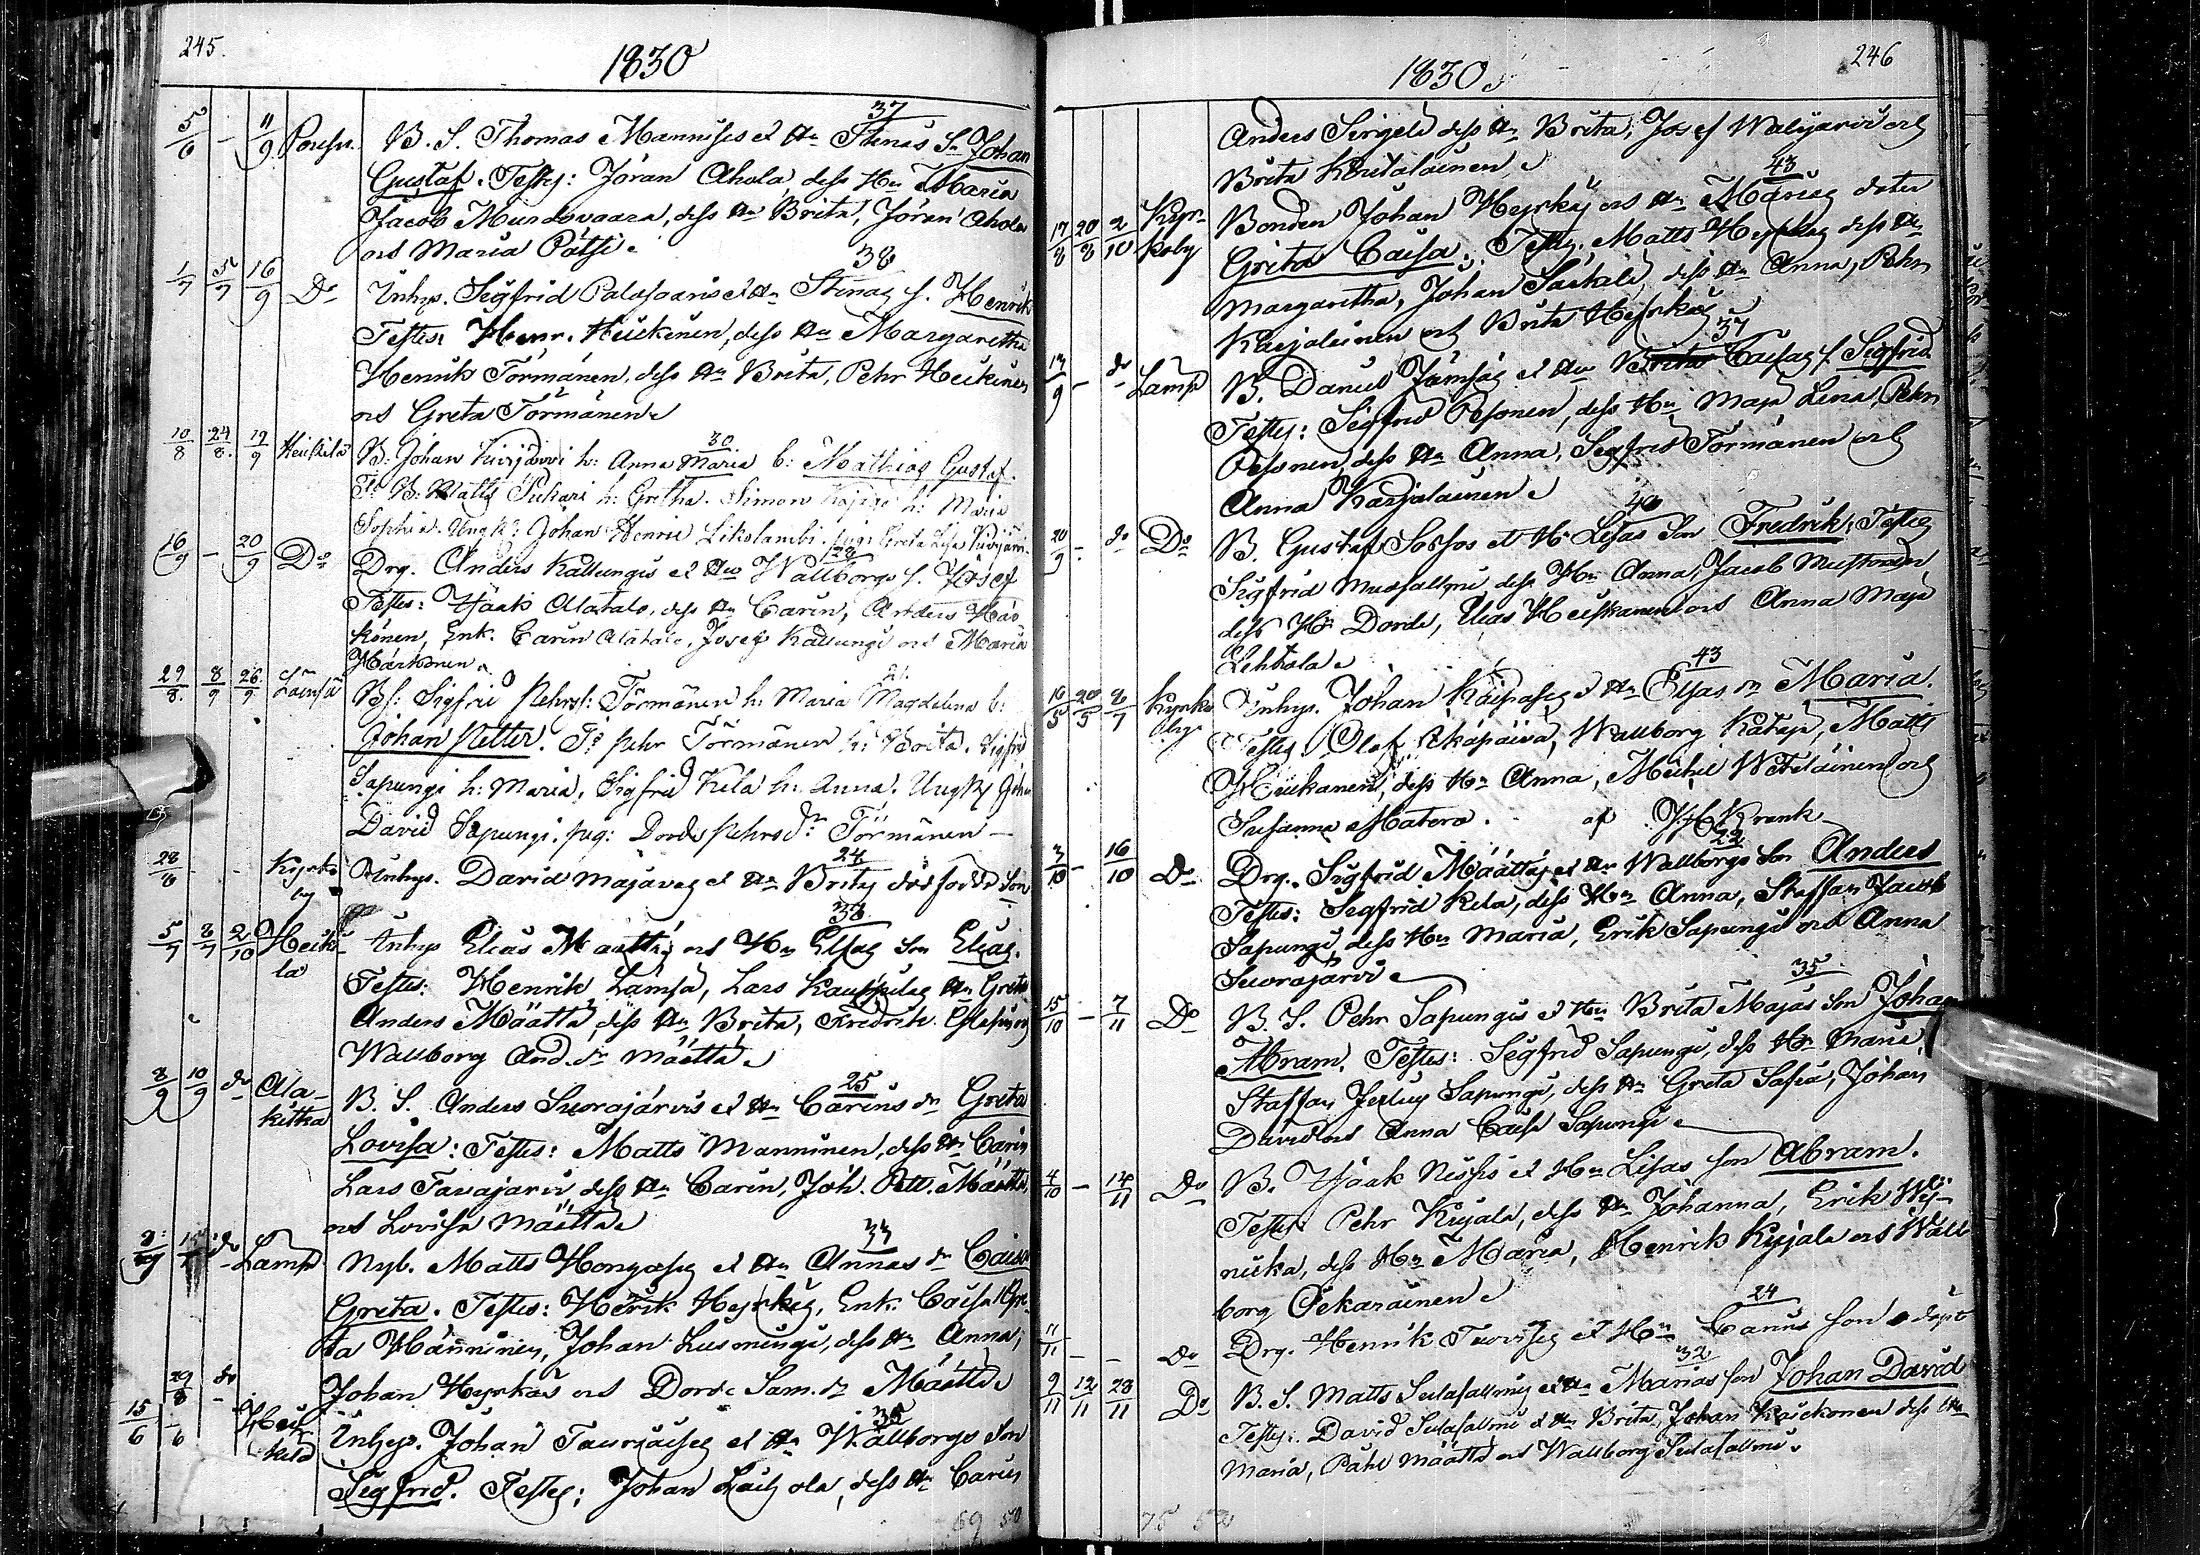 245.
1830
37
5/6 - 11/9 B. S. Thomas Mannises et Hu Stinas Sn Johan
Gustaf. Testes: Jöran Ahola, dess Hu Maria
Jacob Mursdovaara, dess Hu Brita, Jöran Ahola
och Maria Pätsi.
38
1/7 5/7 16/9 Do Inhys. Sigfrid Palosaaris et Hu Stinas s. Henrik
Testes: Henr. Heickinen, dess Hu Margaretha
Henrik Törmänen, dess Hu Brita, Pehr Heikinen
och Greta Törmänen.
30
10/8 24/8 19/9 Heikkilä B: Johan Kivijärvi h: Anna Maria b: Mathias Gustaf.
T: B: Matts h: Gretha. Simon h: Maria
Sophia. Johan Henric Greta Lisa Kivijärvi
28
16/9 - 20/9 Do Drg. Anders Kallungis et Hu Wallborgs s. Josef
Testes: Isaak Alatalo, dess Hu Carin, Anders Här
könen, Enk. Carin Alatalo, Josef Kallungi och Maria
Härkönen.
21
29/8 8/9 26/9 Lämsä Bs: Sigfrid Pehrs: Törmänen h: Maria Magdalena b:
Johan Petter. Ts Pehr Törmänen h: Brita. Sigfrid
Sapungi h: Maria, Sigfrid Kela h: Anna. Ungk Johan
David Sapungi. pig: Dordi Pehrsdr Törmänen
24
28/6 - - Kyrko
by Inhys. David Majavas et Hu Britas dödfödd Son
38
5/7 8/7 2/10 Heik-
la Inhys Elias Määttäs och Hu Elsas son Elias.
Testes: Henrik Lämsä, Lars Kauppilas Hu Greta
Anders Määttä, dess Hu Brita, Fredrik
Wallborg And. dr Määttä
25
8/9 10/9 do Ala-
kitka B. S. Anders Suorajärvis et Hu Carins dr Greta
Lovisa: Testes: Matts Manninen, dess Hu Carin
Lars Tavajärvi, dess Hu Carin, Joh. Pett. Määttä
och Lovisa Määttä
33
do Lämsä Nyb. Matts Hongasis et Hu Annas dr Caisa
Greta. Testes: Henrik Heyrkäs, Enk. Caisa Gre-
ta Hänninen, Johan Lusmingi, dess Hu Anna,
Johan Heyrkäs och Dorde Sam. dr Määttä
29/8 do
35
15/6 /6 Heik
kilä Inhys. Johan Tauriäises et Hu Wallborgs Son
Sigfrid. Testes: Johan ola, dess Hu Carin
69 50
1830
246
Anders Sirgelä dess Hu Brita, Josef Walijärvi och
Brita Kuitalainen
43
17/8 20/8 2/10 Kyr-
koby Bonden Johan Heyrkäs och Hu Marias doter
Greta Caisa. Testes. Matts Heyrkäs dess Hu
Margaretha, Johan Särkilä, dess Hu Anna, Pehr
Karjalainen och Brita Heyrkäs
37
13/9 - do Lämsä B. Daniel Jämsäs et Hu Brita Caisas s. Sigfrid
Testes: Sigfrid Pesonen, dess Hu Maja Lena, Pehr
Pesonen, dess Hu Anna, Sigfrid Törmänen och
Anna Karjalainen
40
20/9 - do Do B. Gustaf Sossos et Hu Lisas Son Fredrik, Testes
Sigfrid Mursallmi, dess Hu Anna, Jacob Mustonen
dess Hu Dorde, Elias Heiskanen och Anna Maja
Lehtola
43
16/5 20/5 9/7 Kyrko
by Inhys. Johan Käspäses et Hu Elsas dr Maria.
Testes Olof Akäpäivä, Wallborg Kataja, Matts
Heikanen, dess Hu Anna, Michel Wetäläinen och
Susanna Matero. af JH Krank
22
3/10 - 16/10 Do Drg. Sigfrid Määttäs et Hu Wallborgs Son Anders
Testes: Sigfrid Kela, dess Hu Anna, Staffan Jacob
Sapungi, dess Hu Maria, Erik Sapungi och Anna
Suorajärvi
35
15/10 - 7/11 Do B. S. Pehr Sapungis et Hu Brita Majas Son Johan
Abram. Testes: Sigfrid Sapungi, dess Hu Maria,
Staffan Sapungi, dess Hu Greta Sofia, Johan
David och Anna Caisa Sapungi
4/10 - 14/11 Do B. Isaak Nissis et Hu Lisas son Abram.
Testes Pehr Kujala, dess Hu Johanna, Erik Wij-
nicka, dess Hu Maria, Henrik Kujala och Wall
borg Pekarainen
24
11/11 - - Do Drg. Henrik et Hu Carins son odöpt
32
9/11 12/11 28/11 Do B. S. Matts Suilasallmis et Hu Marias son Johan David
Testes. David Suilasallmi et Hu Brita, Johan Käickönen dess Hu
Maria, Påhl Määttä och Wallborg Suilasallmi.
75 52